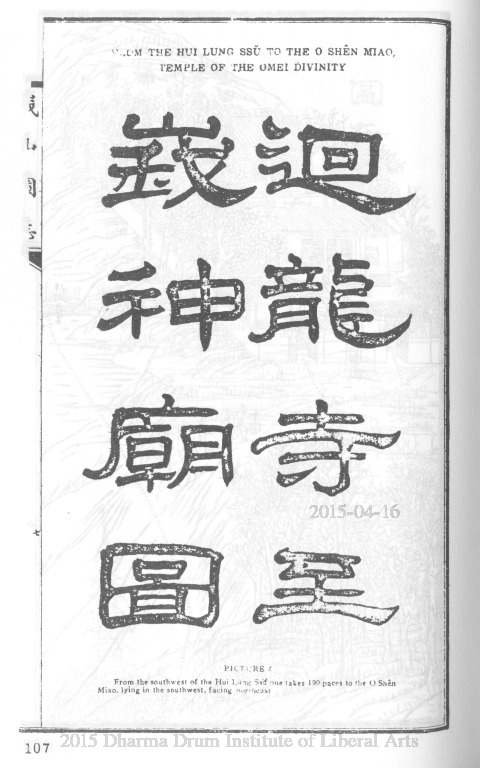 FROM THE HUI LUNG SSŬ TO THE O SHÊN MIAO,
TEMPLE OF THE OMEI DIVINITY
迴龍寺至
峩神廟圖
2015-04-16
PICTURE
From the southwest of the Hui Lung Ssŭ one takes 190 paces to the O Shên
Miao, lying in the southwest, facing northeast
107
2015 Dharma Drum Institute of Liberal Arts